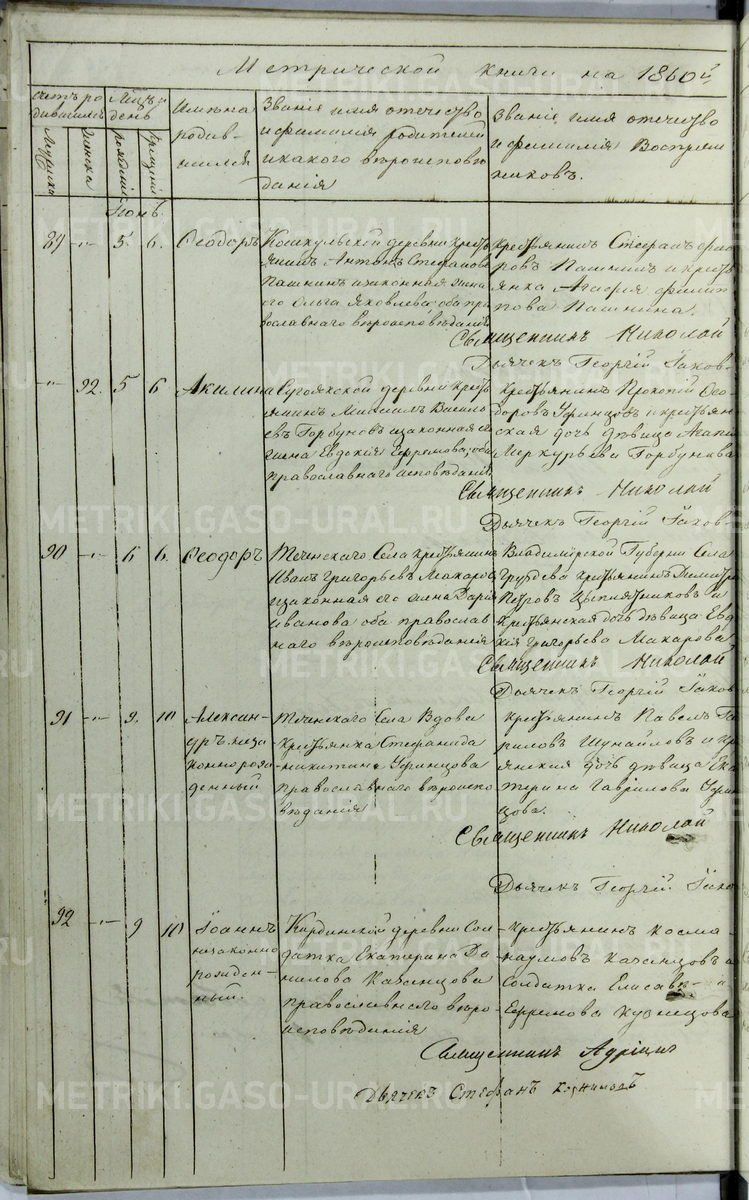 Метрической книги на 1860й
Счетъ ро
дившихся
Мѣсяцъ и
день
Имена
родив-
шихся
Званіе имя отечество
и фамилія родителей
и какого вѣроисповѣ
данія
Званіе имя отечество
и фамилія Воспріем
никовъ.
Мужска
Женска
рожденія
Крещенія
Іюнь.
89 -"- 5. 6. Ѳеодоръ
Кошкульской деревни кресть
янинъ Антонъ Стефановъ
Пашнинъ и законная жена
его Ольга Яковлева; оба пра
вославнаго вѣроисповѣданія
Крестьянинъ Стефанъ Федо
ровъ Пашнинъ и кресть
янка Агафія Филип
пова Пашнина.
Священникъ Николай
Дьячекъ Георгій Іаков-
-"- 92. 5 6 Акилина
Сугоякской деревни Кресть
янинъ Михаилъ Василь
евъ Горбуновъ и законная его
жена Евдокія Ефремова; оба
православнаго исповѣданія
Крестьянинъ Прокопій Ѳео
доровъ Уфинцовъ и крестьян
ская дочь дѣвица
Меркурьева Горбунова
Священникъ Николай
Дьячекъ Георгій Іаков-
90 -"- 6 6. Ѳеодоръ
Теченскаго Села крестьянинъ
Иванъ Григорьевъ Макаровъ
и законная его жена Дарія
Иванова оба православ
наго вѣроисповѣданія
Владимірской Губерни Села
Груздева крестьянинъ Димитрій
Петровъ и
Крестьянская дочь дѣвица Евдо
кія Григорьева Макарова
Священникъ Николай
Дьячекъ Георгій Іаков
91 -"- 9. 10 Алексан-
дръ неза
коннорож
денный
Теченскаго Села Вдова
Крестьянка Стефанида
Никитина Уфинцова
Православнаго вѣроиспо
вѣданія
Крестьянинъ Павелъ Га
вриловъ Шунайловъ и кре
янская дочь дѣвица Ека
терина Гаврілова Уфин
цова.
Священникъ Николай
Дьячекъ Георгій Іако
92 -"- 9 10 Іоаннъ
незаконно
рожден-
ный.
Кирдинской деревни Сол
датка Екатерина Да
нилова Казанцова
Православнаго вѣро-
исповѣданія
Крестьянинъ Косма
Наумовъ Казанцовъ и
Солдатка Елисаве-а
Ефремова Кузнецова
Священникъ Адріанъ
Дьячекъ Стефанъ
METRIKI.GASO-URAL.RU